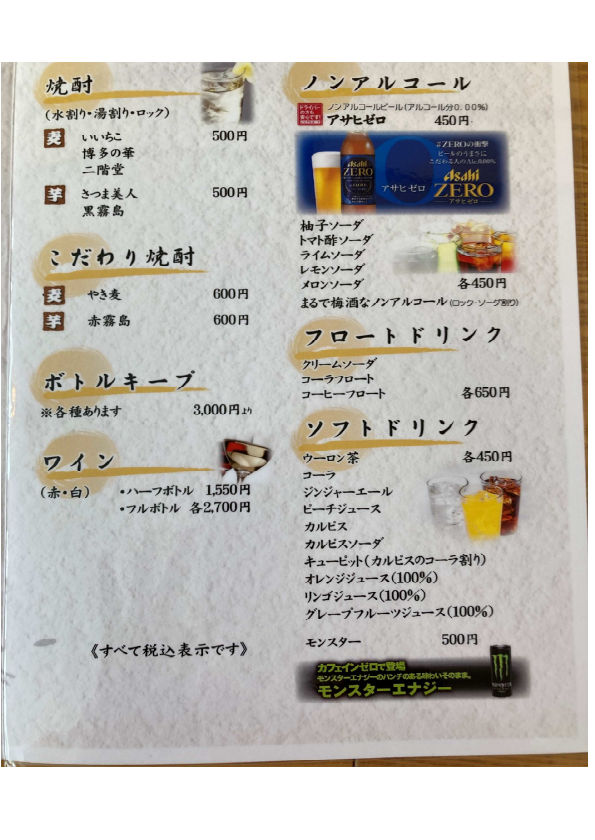 焼酎
(水割り・湯割り・ロック)
麦 いいちこ 500円
博多の華
二階堂
芋 さつま美人 500円
黒霧島
こだわり焼酎
麦 やき麦 600円
芋 赤霧島 600円
ボトルキープ
※各種あります 3,000円より
ワイン
(赤・白) ・ハーフボトル 1,550円
・フルボトル 各2,700円
《すべて税込表示です》
ノンアルコール
ドライバーの方も安心です!
ノンアルコールビール(アルコール分0.00%)
アサヒゼロ 450円
#ZEROの衝撃
ビールのうまさに
こだわる人のAlc.0.00%
Asahi
ZERO
アサヒゼロ
Asahi
ZERO
アサヒゼロ
柚子ソーダ
トマト酢ソーダ
ライムソーダ
レモンソーダ
メロンソーダ 各450円
まるで梅酒なノンアルコール(ロック・ソーダ割り)
フロートドリンク
クリームソーダ
コーラフロート
コーヒーフロート 各650円
ソフトドリンク
ウーロン茶 各450円
コーラ
ジンジャーエール
ピーチジュース
カルピス
カルピスソーダ
キューピット(カルピスのコーラ割り)
オレンジジュース(100%)
リンゴジュース(100%)
グレープフルーツジュース(100%)
モンスター 500円
カフェインゼロで登場
モンスターエナジーのパンチのある味わいそのまま。
モンスターエナジー